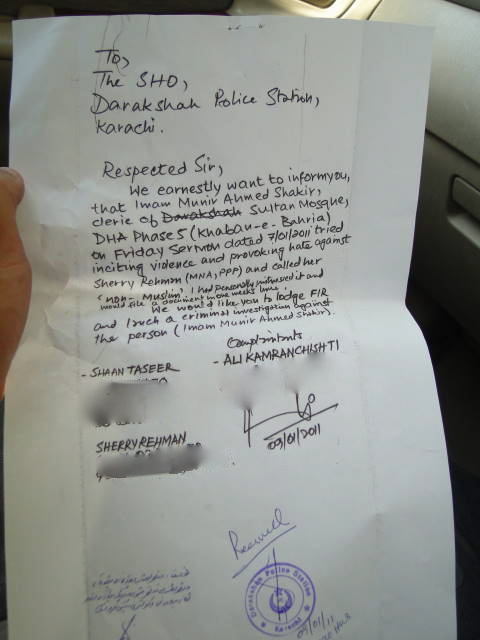 To,
The SHO,
Darakshah Police Station,
Karachi.
Respected Sir,
We earnestly want to inform you,
that Imam Munir Ahmed Shakir,
cleric of Darakshah Sultan Mosque,
DHA Phase 5 (Khaban-e-Bahria)
on Friday Sermon dated 7/01/2011 tried
inciting violence and provoking hate against
Sherry Rehman (MNA, PPP) and called her
"non-Muslim". I had personally witnessed it and
would file a document more weeks time.
We would like you to lodge FIR
and lauch a criminal investigation against
the person (Imam Munir Ahmed Shakir).
Complaintants
- SHAAN TASEER
- ALI KAMRAN CHISHTI
09/01/2011
SHERRY REHMAN
Received
Darakshan Police Station
Karachi
09/01/11